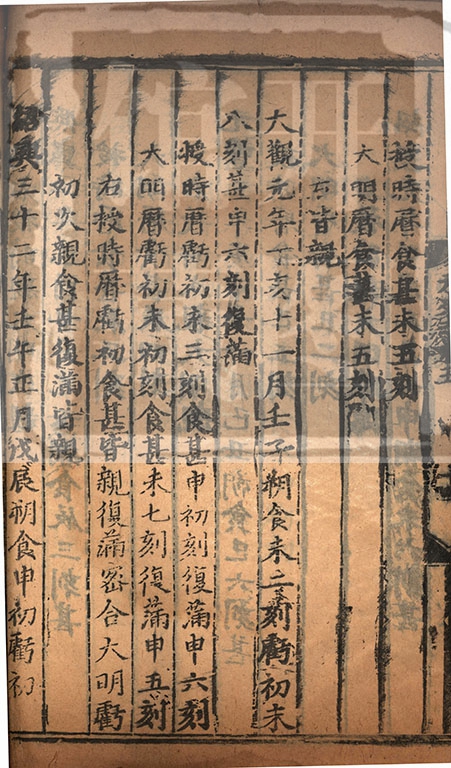 授時曆食甚未五刻
大明曆食甚未五刻
右皆親
大觀元年丁亥十一月壬子朔食未二刻虧初未
八刻甚申六刻復滿
授時曆虧初未三刻食甚申初刻復滿申六刻
大明曆虧初未初刻食甚未七刻復滿申五刻
右授時曆虧初食甚皆親復滿密合大明虧
初次親食甚復滿皆親
紹興三十二年壬午正月戊辰朔食申初虧初